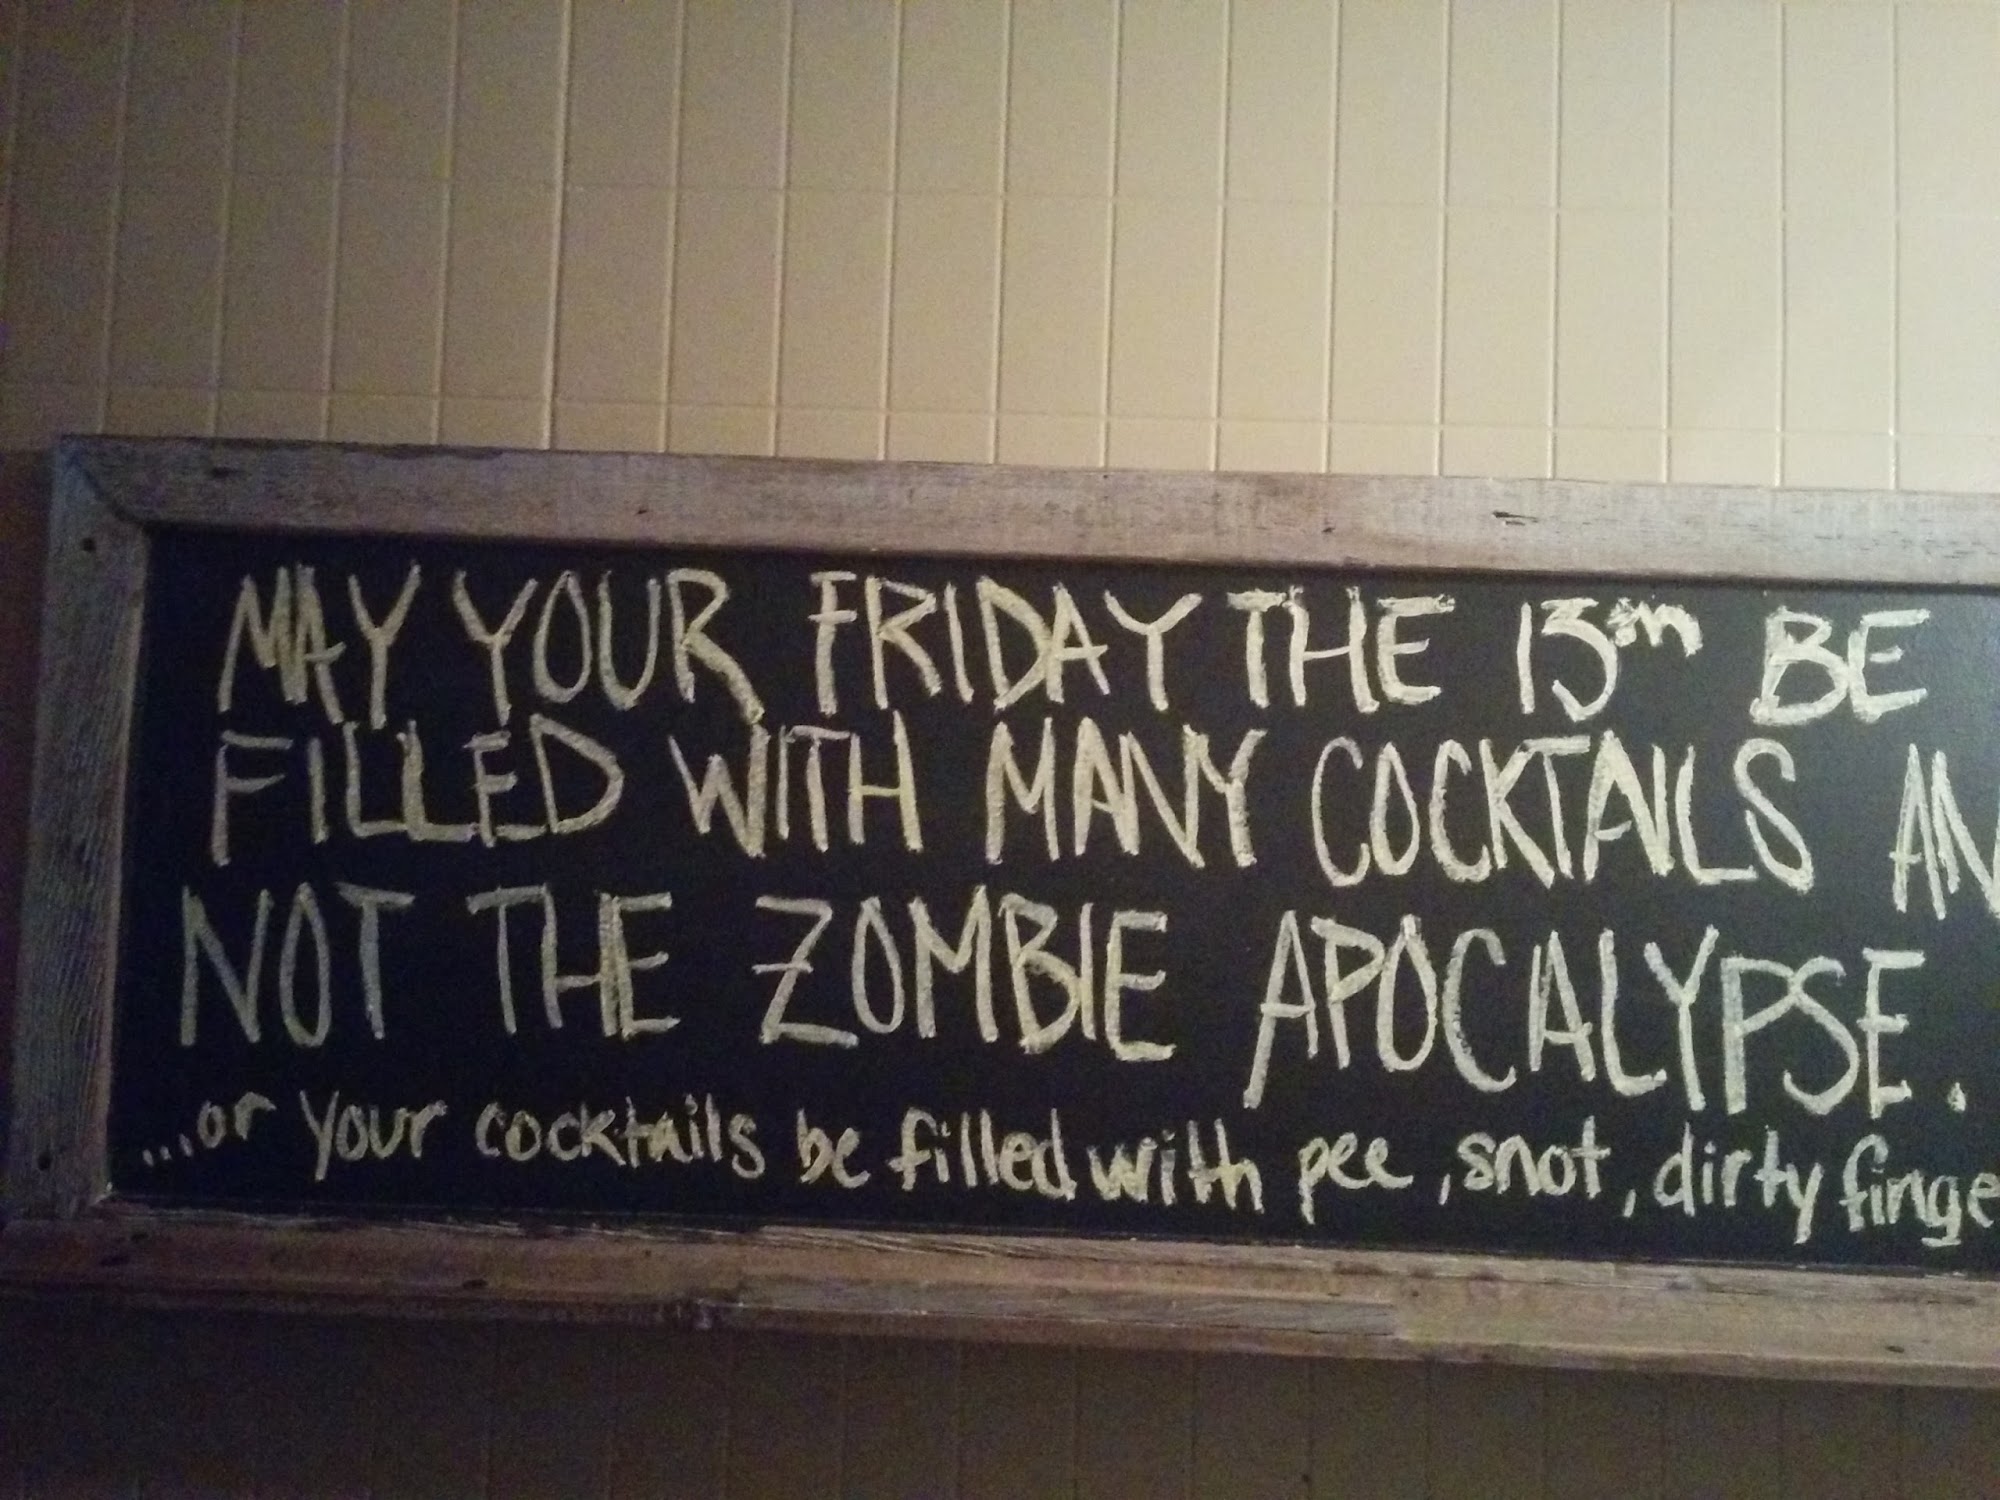 MAY YOUR FRIDAY THE 13TH BE
FILLED WITH MANY COCKTAILS AN
NOT THE ZOMBIE APOCALYPSE.
...or your cocktails be filled with pee, snot, dirty finge